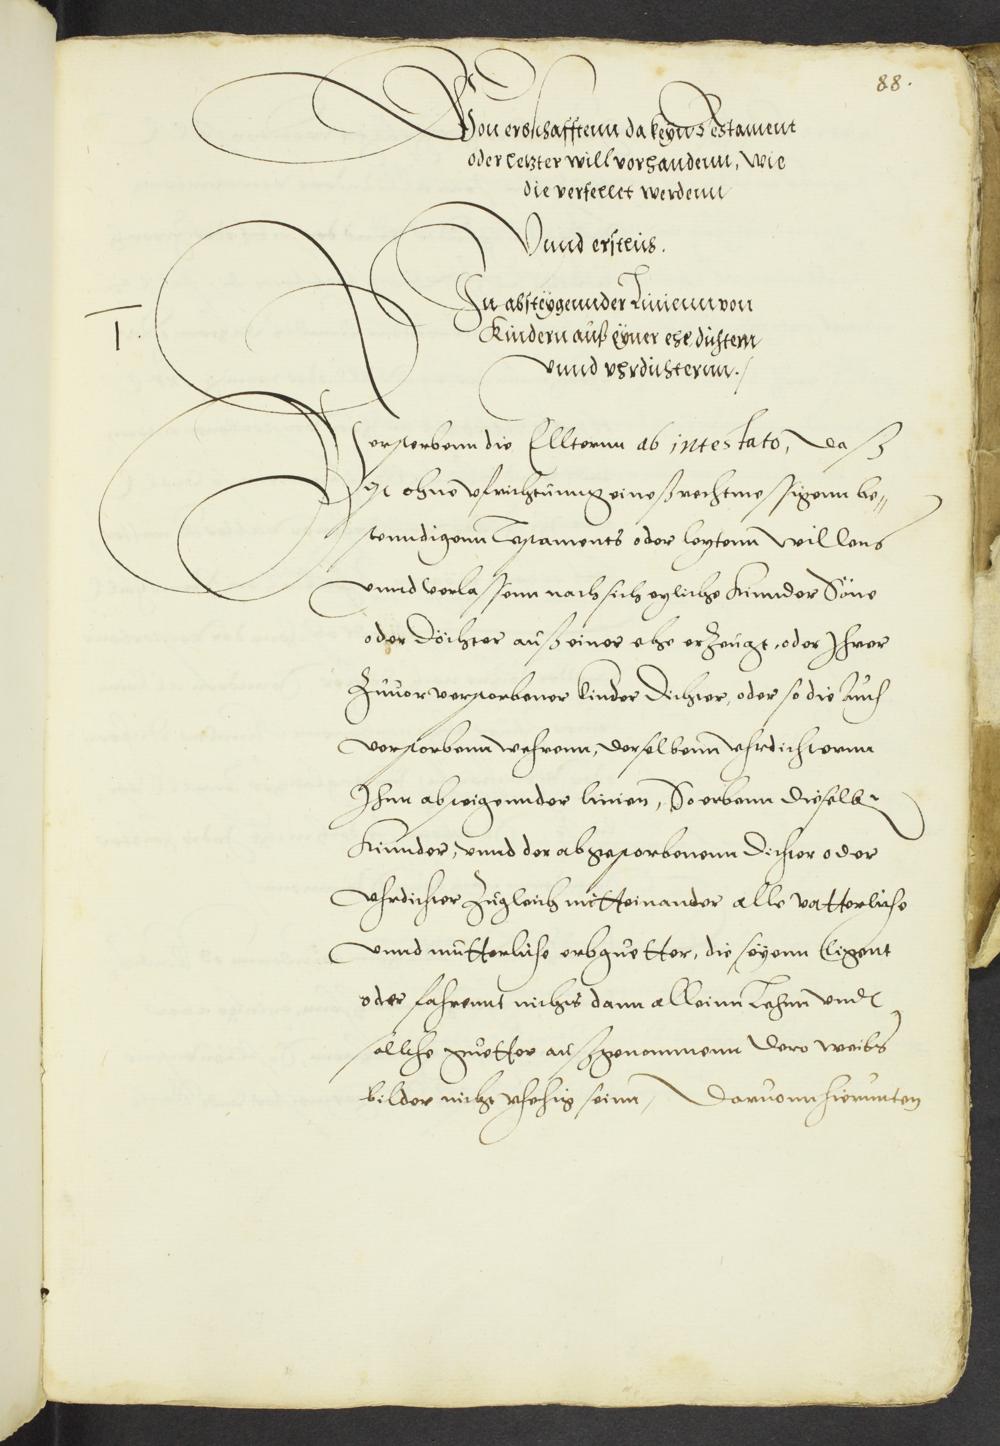 88.
Von erbschafftenn da keyn Testament
oder letzter will vorhandenn, wie
die verfellet werdenn
Vnnd erstens.
In absteÿgennder Linienn von
Kindern auß eÿner ehe dichtern
vnnd vhrdichternn./
I.
Versterbenn die Elltternn ab intestato, daß
ist ohne vfrichtünng eineß rechtmessigenn be„
stenndigenn Testaments oder letzten willens
vnnd verlassenn nach sich etzliche Kinnder Söne
oder Döchter auß einer ehe erzeugt, oder Ihrer
Zuuor verstorbener kinder Dichter, oder so die Auch
verstorbenn wehrenn, derselbenn vhrdichternn
Ihnn absteigennder linien, So erbenn dieselbe
Kinnder, vnnd der abgestorbenenn Dichter oder
vhrdichter Zugleich mitteinander alle vatterliche
vnnd mütterliche erbguetter, die seÿenn ligent
oder fahrennt nichts dann alleinn Lehnn vnd
solche guetter außgenommenn dero weibs
bilder nicht vhehig seinn, Daruonn hierunten